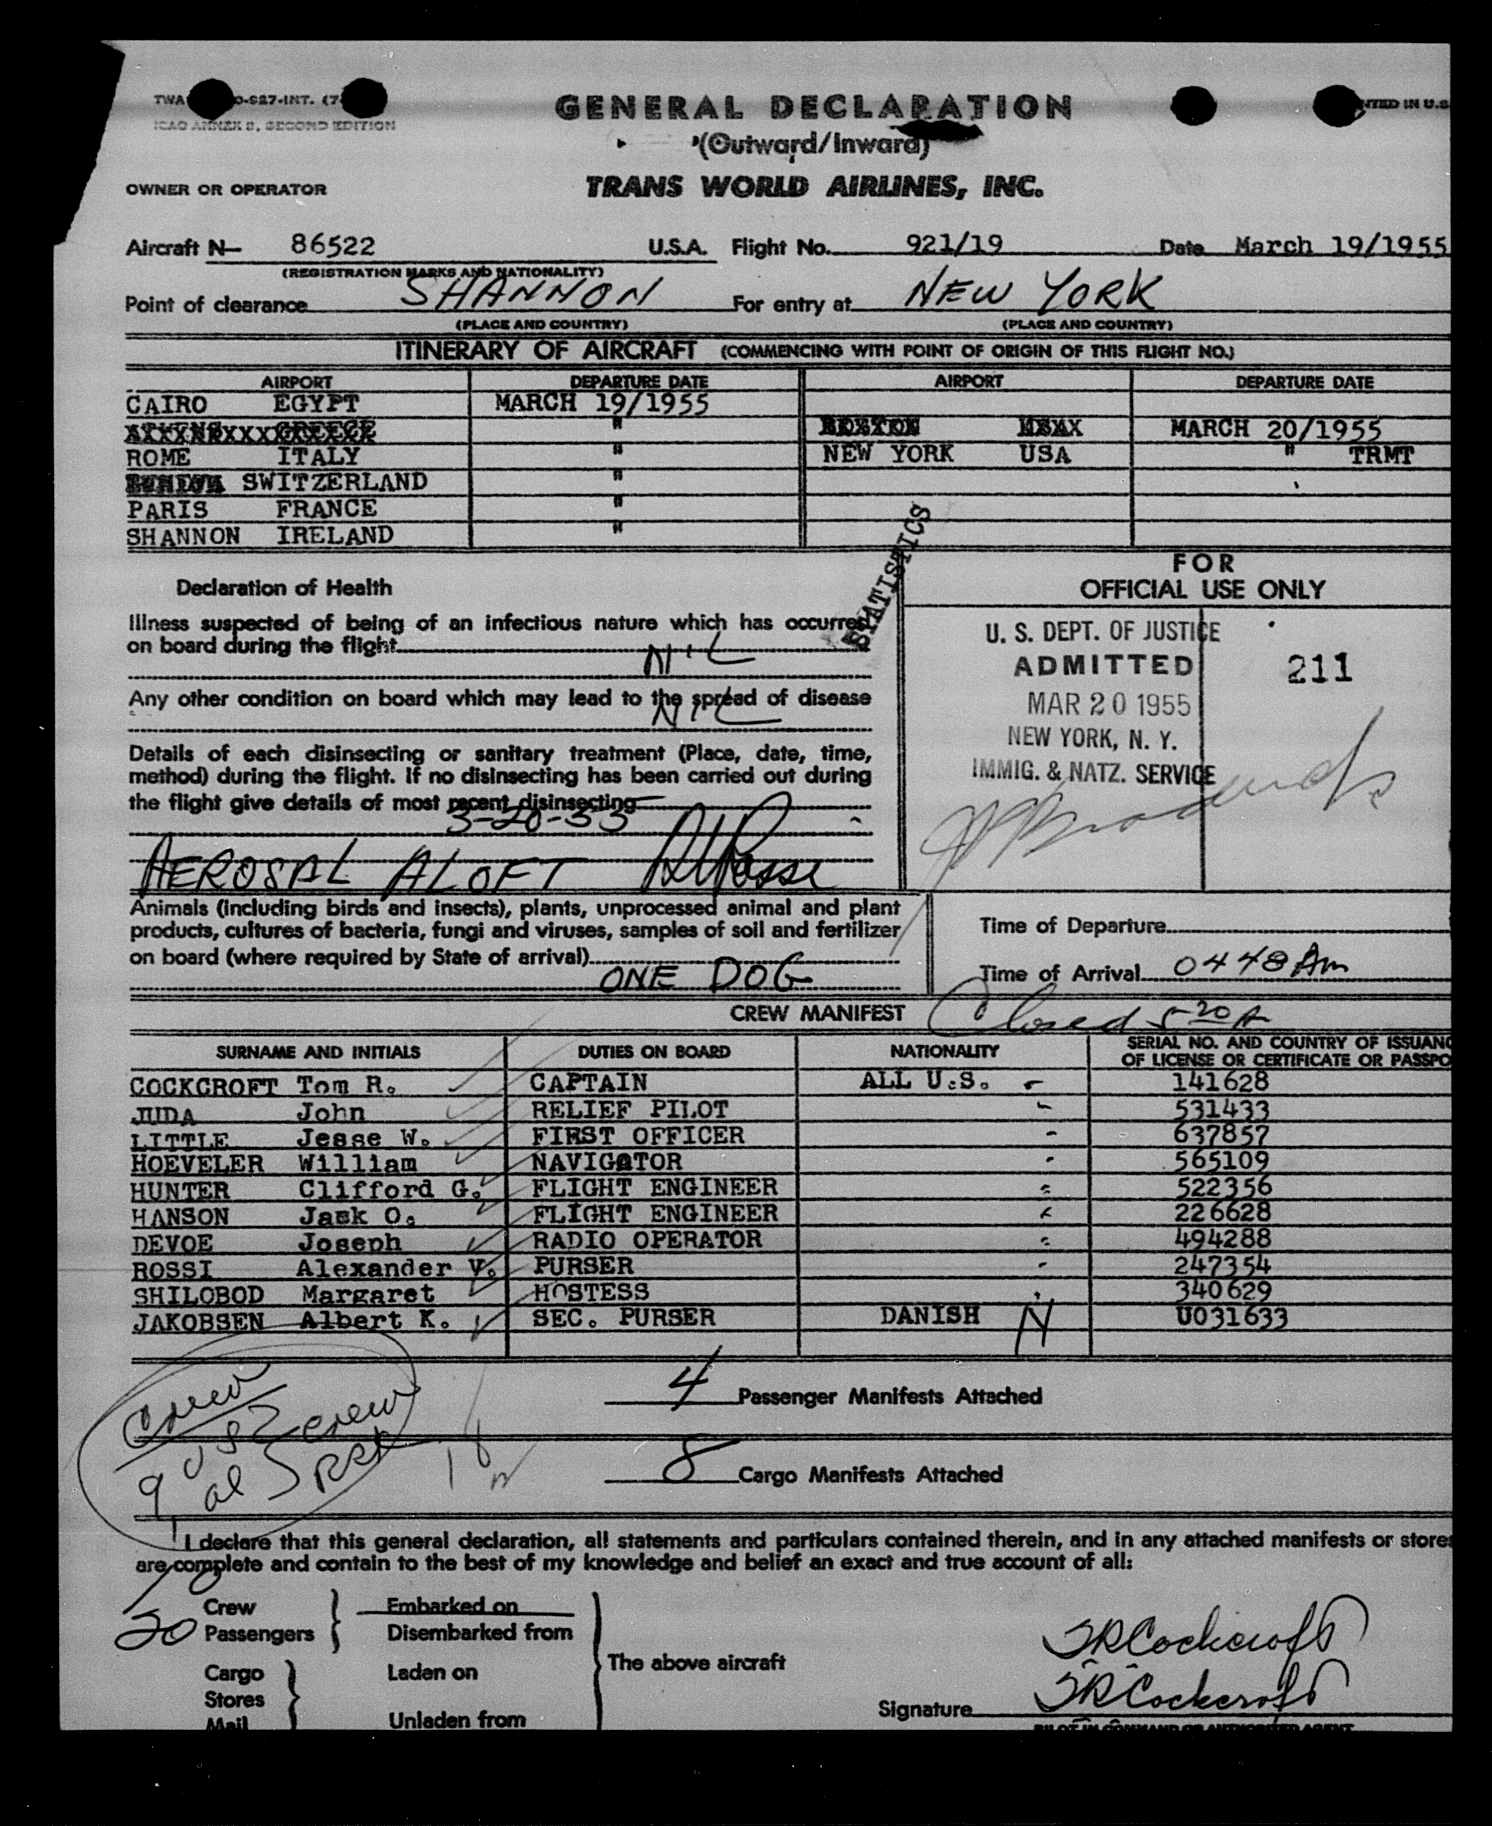 GENERAL DECLARATION
(Outward/Inward)
ICAO ANNEX 9, SECOND EDITION
OWNER OR OPERATOR TRANS WORLD AIRLINES, INC.
Aircraft N— 86522 U.S.A. Flight No. 921/19 Date March 19/1955
(REGISTRATION MARKS AND NATIONALITY)
Point of clearance SHANNON For entry at NEW YORK
(PLACE AND COUNTRY) (PLACE AND COUNTRY)
ITINERARY OF AIRCRAFT (COMMENCING WITH POINT OF ORIGIN OF THIS FLIGHT NO.)
AIRPORT DEPARTURE DATE AIRPORT DEPARTURE DATE
CAIRO EGYPT MARCH 19/1955
" MARCH 20/1955
ROME ITALY " NEW YORK USA " TRMT
SWITZERLAND "
PARIS FRANCE "
SHANNON IRELAND "
STATISTICS
FOR
OFFICIAL USE ONLY
Declaration of Health
Illness suspected of being of an infectious nature which has occurred
on board during the flight NIL
Any other condition on board which may lead to the spread of disease
NIL
Details of each disinsecting or sanitary treatment (Place, date, time,
method) during the flight. If no disinsecting has been carried out during
the flight give details of most recent disinsecting
3-20-55
AEROSAL ALOFT
U. S. DEPT. OF JUSTICE
ADMITTED 211
MAR 20 1955
NEW YORK, N. Y.
IMMIG. & NATZ. SERVICE
Animals (including birds and insects), plants, unprocessed animal and plant
products, cultures of bacteria, fungi and viruses, samples of soil and fertilizer
on board (where required by State of arrival)
ONE DOG
Time of Departure
Time of Arrival 0448 Am
CREW MANIFEST Closed 5 20 A
SURNAME AND INITIALS DUTIES ON BOARD NATIONALITY SERIAL NO. AND COUNTRY OF ISSUANC
OF LICENSE OR CERTIFICATE OR PASSPO
COCKCROFT Tom R. CAPTAIN ALL U.S. 141628
JUDA John RELIEF PILOT 531433
LITTLE Jesse W. FIRST OFFICER 637857
HOEVELER William NAVIGATOR 565109
HUNTER Clifford G. FLIGHT ENGINEER 522356
HANSON Jack O. FLIGHT ENGINEER 226628
DEVOE Joseph RADIO OPERATOR 494288
ROSSI Alexander V. PURSER 247354
SHILOBOD Margaret HOSTESS 340629
JAKOBSEN Albert K. SEC. PURSER DANISH N U031633
4 Passenger Manifests Attached
8 Cargo Manifests Attached
Crew
9 US
crew
I declare that this general declaration, all statements and particulars contained therein, and in any attached manifests or stores
are complete and contain to the best of my knowledge and belief an exact and true account of all:
10 Crew Embarked on
20 Passengers Disembarked from
The above aircraft
Cargo Laden on
Stores
Mail Unladen from
TRCockcroft
Signature TRCockcroft
PILOT IN COMMAND OR AUTHORIZED AGENT